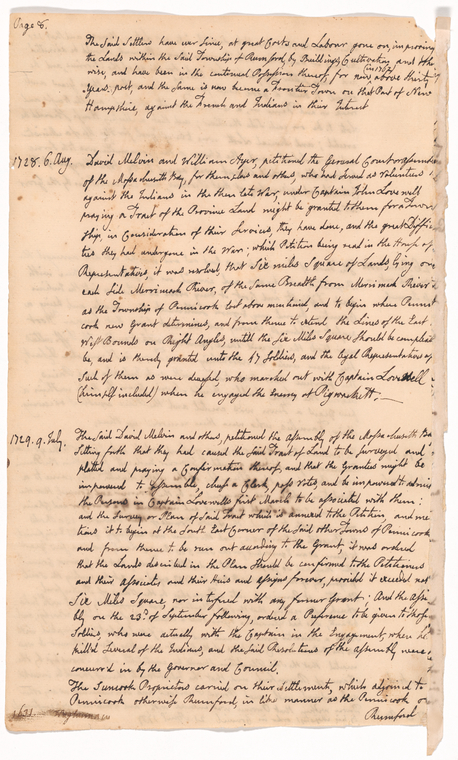 Page 8.
The Said Settlers have ever Since, at great Costs and Labour gone on, improving
the Lands within the Said Township of Rumford, by Buildings, Cultivating and othe
wise, and have been in the continued Possession thereof, for now, above thirty
Years, past, and the Same is now become a Frontier Town on that Part of New
Hampshire, against the French and Indians in their Interest
1728. 6. Aug. David Melvin and William Ayer, petitioned the General Court or assembly
of the Massachusetts Bay, for themselves and others, who had Served as Volunteers
against the Indians in the then late War, under Captain John Lovewell
praying a Tract of the Province Land might be granted to them for a Town
Ship, in Consideration of their Services, they have done, and the great Difficul
ties they had undergone in the War; which Petition being read in the House of
Representatives, it was resolved, that Six miles Square of Lands, lying on
each Side Merrimack River, of the Same Breadth from Merrimack River
as the Township of Pennicook last above mentioned, and to begin where Penni
cook new Grant determines, and from thence to extend the Lines of the East
West Bounds on Right Angles, untill the Six Mile Square Should be compleated
be, and is thereby granted unto the 47 Soldiers, and the legal Representatives of
Such of them as were deceased, who marched out with Captain Lovewell
(himself included) when he engaged the Enemy at Pigwackett. —
1729. 9. July. The Said David Melvin and others, petitioned the assembly of the Massachusetts Ba
Setting forth that they had caused the Said Tract of Land to be Surveyed and
platted and praying a Confirmation thereof, and that the Grantees might be
impowered to assemble, chuse a Clerk, pass Votes, and be impowered to admit
the Persons in Captain Lovewells first March to be associated with them;
and the Survey or Plan of Said Tract which is annexed to the Petition and me
tions it to begin at the South East Corner of the Said other Towns of Pennicook
and from thence to be run out according to the Grant; it was ordered
that the Lands described in the Plan Should be confirmed to the Petitioners
and their associates, and their heirs and assigns forever, provided it exceeded not
Six Miles Square, nor interfered with any former Grant; And the asse
bly, on the 23.d of September following, ordered a Preference to be given to thos
Soldiers, who were actually with the Captain in the Engagement, when he
killed Several of the Indians, and the Said Resolutions of the assembly, were
concurr'd in by the Governor and Council,
The Suncook Proprietors carried on their Settlement, which adjoined to
Pennicook otherwise Rumford, in like manner as the Pennicook or
Rumford
1631